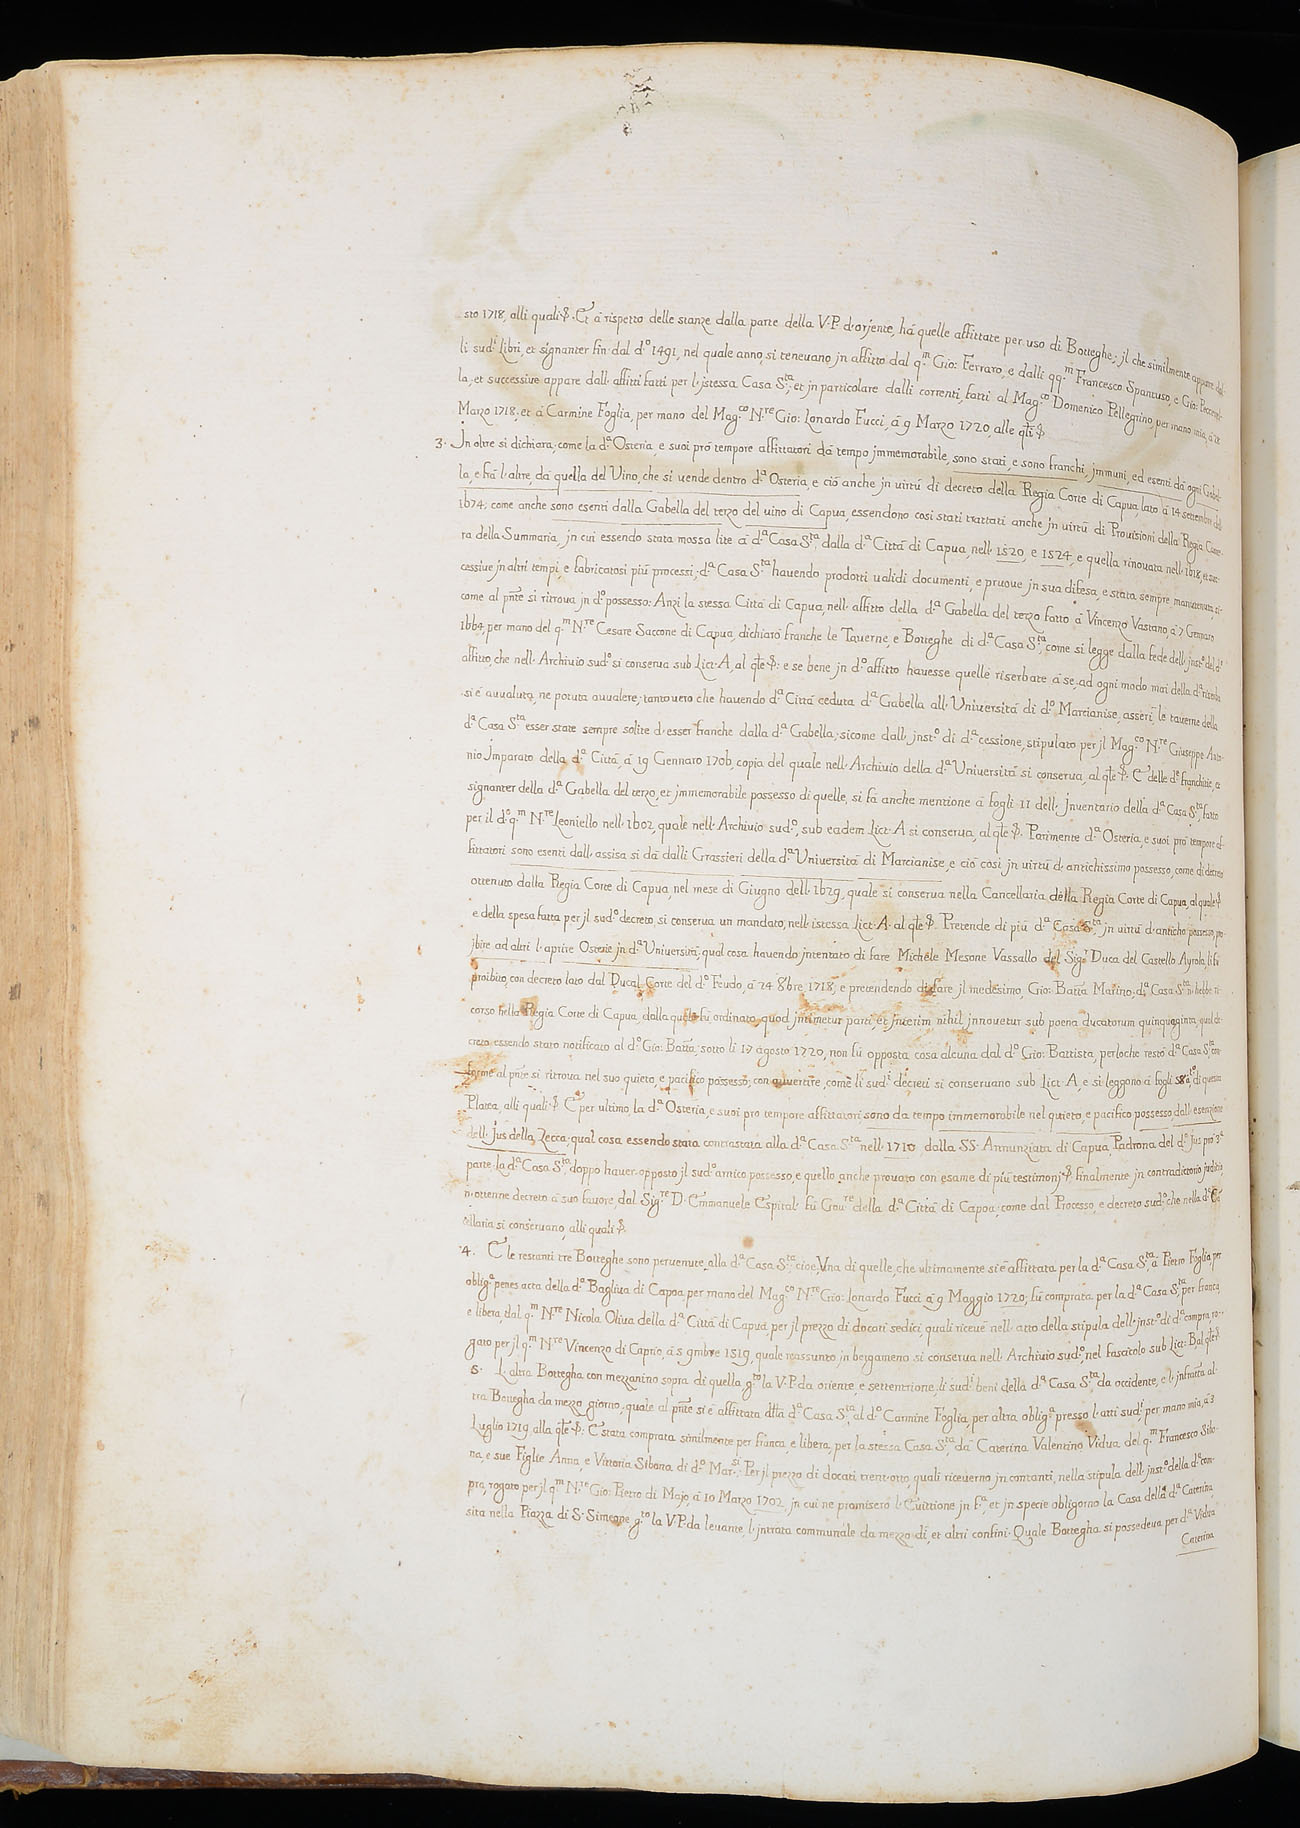 sto 1718, alli quali §. Et à rispetto delle stanze dalla parte della V. P. d'orjente, hà quelle affittate per uso di Botteghe; jl che similmente appare dal-
li sud.i Libri, et signanter fin dal d.o 1491, nel quale anno, si teneuano jn affitto dal q.m Gio: Ferraro, e dalli qq.m Francesco Spantuso, e Gio:
la, et successiue appare dall' affitti fatti per l' jstessa Casa S.ta, et jn particolare dalli correnti, fatti al Mag.co Domenico Pellegrino, per mano mia, à
Marzo 1718; et à Carmine Foglia, per mano del Mag.co N.re Gio: Lonardo Fucci, à 9 Marzo 1720, alle qli §
3. Jn oltre si dichiara, come la d.a Osteria, e suoi prò tempore affittatori dà tempo jmmemorabile, sono stati, e sono franchi, jmmuni, ed esenti dà ogni Gabel-
la, e frà l' altre, dà quella del Vino, che si uende dentro d.a Osteria, e ciò anche jn virtù di decreto della Regia Corte di Capua, lato à 14 settembre dell'
1674; come anche sono esenti dalla Gabella del terzo del uino di Capua, essendono così stati trattati anche jn virtù di Prouisioni della Regia Came-
ra della Summaria, jn cui essendo stata mossa lite à d.a Casa S.ta, dalla d.a Città di Capua, nell' 1520, e 1524, e quella rinouata nell' 1618, et suc-
cessiue jn altri tempi, e fabricatosi più processi; d.a Casa S.ta hauendo prodotti ualidi documenti, e pruoue jn sua difesa, e stata sempre manutenuta, si-
come al pnte si ritroua jn d.o possesso: Anzi la stessa Città di Capua, nell' affitto della d.a Gabella del terzo fatto à Vincenzo Vastano, à 7 Gennaro
1664, per mano del q.m N.re Cesare Saccone di Capua, dichiarò franche le Tauerne, e Botteghe di d.a Casa S.ta, come si legge dalla fede dell' jnst.o del d.o
affitto, che nell' Archiuio sud.o si conserua sub Litt. A, al qle §: e se bene jn d.o affitto hauesse quelle riserbate à se, ad ogni modo mai della d.a riserba
si è auualuta, ne potuta auualere; tanto uero che hauendo d.a Città ceduta d.a Gabella all' Uniuersità di d.o Marcianise, asserì le tauerne della
d.a Casa S.ta esser state sempre solite d' esser franche dalla d.a Gabella; sicome dall' jnst.o di d.a cessione, stipulato per jl Mag.co N.re Giuseppe Anto-
nio Jmparato della d.a Città, à 19 Gennaro 1706, copia del quale nell' Archiuio della d.a Uniuersità si conserua, al qle §: E delle d.e franchitie, et
signanter della d.a Gabella del terzo, et jmmemorabile possesso di quelle, si fà anche mentione à fogli 11 dell' Jnuentario della d.a Casa S.ta, fatto
per il d.o q.m N.re Leoniello nell' 1602, quale nell' Archiuio sud.o, sub eadem Litt. A si conserua, al qle §. Parimente d.a Osteria, e suoi prò tempore af-
fittatori sono esenti dall' assisa si dà dalli Grassieri della d.a Uniuersità di Marcianise, e ciò così jn virtù d' antichissimo possesso, come di decreto
ottenuto dalla Regia Corte di Capua, nel mese di Giugno dell' 1629, quale si conserua nella Cancellaria della Regia Corte di Capua, al quale §
e della spesa fatta per jl sud.o decreto, si conserua un mandato, nell' istessa Litt. A. al qle §. Pretende di più d.a Casa S.ta jn virtù d' anticho possesso, pro-
jbire ad altri l' aprire Osterie jn d.a Uniuersità, qual cosa hauendo jntentato di fare Michele Mesone Vassallo del Sig.r Duca del Castello Ayrola, li fù
proibito, con decreto lato dal Ducal Corte del d.o Feudo, à 24 8bre 1718; e pretendendo di fare jl medesimo, Gio: Batta Marino, d.a Casa S.ta n' hebbe ri-
corso nella Regia Corte di Capua, dalla quale fù ordinato, quod jntimetur parti, et jnterim nihil jnnouetur sub poena ducatorum quinquaginta, qual de-
creto essendo stato notificato al d.o Gio: Batta, sotto li 17 agosto 1720, non fù opposta cosa alcuna dal d.o Gio: Battista, perloche restò d.a Casa S.ta con-
forme al pnte si ritroua nel suo quieto, e pacifico possesso; con auuertire, come li sud.i decreti si conseruano sub Litt. A, e si leggono à fogli di questa
Platea, alli quali § E per ultimo, la d.a Osteria, e suoi pro tempore affittatori, sono da tempo immemorabile nel quieto, e pacifico possesso dell' esenzione
dell' Jus della Zecca; qual cosa essendo stata contrastata alla d.a Casa S.ta nell' 1710 dalla SS. Annunziata di Capua, Padrona del d.o Jus pro 3.a
parte, la d.a Casa S.ta, doppo hauer opposto jl sud.o antico possesso, e quello anche prouato con esame di più testimonj § finalmente jn contradittorio juditio
n' ottenne decreto à suo fauore, dal Sig.re D. Emmanuele Espital fù Gou.re della d.a Città di Capoa; come dal Processo, e decreto sud.o, che nella d.a Can-
cellaria si conseruano, alli quali §.
4. E le restanti tre Botteghe sono peruenute alla d.a Casa S.ta, cioè; Vna di quelle, che ultimamente si è affittata per la d.a Casa S.ta, à Pietro Foglia, per
oblig.a penes acta della d.a Bagliua di Capoa, per mano del Mag.co N.re Gio: Lonardo Fucci à 9 Maggio 1720; fù comprata per la d.a Casa S.ta, per franca,
e libera, dal q.m N.re Nicola Oliua della d.a Città di Capua, per jl prezzo di docati sedici, quali riceuè nell' atto della stipula dell' jnst.o di d.a compra, ro-
gato per jl q.m N.re Vincenzo di Caprio, à 5 9mbre 1519, quale reassunto jn bergameno si conserua nell' Archiuio sud.o, nel fascicolo sub Litt: B, al qle §.
5. L' altra Bottegha con mezzanino sopra di quella, g.to la V. P. da oriente, e settentrione, li sud.i beni della d.a Casa S.ta da occidente, e l' jnfratta al-
tra Bottegha da mezzo giorno, quale al pnte si è affittata dlla d.a Casa S.ta, al d.o Carmine Foglia, per altra oblig.a presso l' atti sud.i per mano mia, à 3
Luglio 1719, alla qle §: E stata comprata similmente per franca, e libera, per la stessa Casa S.ta, dà Caterina Valentino Vidua del q.m Francesco Sibo-
na, e sue Figlie Anna, e Vittoria Sibona di d.o Mar.si: Per jl prezzo di docati trent' otto, quali riceuerno jn contanti, nella stipula dell' jnst.o della d.a com-
pra, rogato per jl q.m N.re Gio: Pietro di Majo à 10 Marzo 1702, jn cui ne promiserò l' Euittione jn F.a, et jn specie obligorno la Casa della d.a Caterina
sita nella Piazza di S. Simeone g.to la V. P. da leuante, l' jntrata communale da mezzo dì, et altri confini. Quale Bottegha si possedeua per d.a Vidua
Caterina